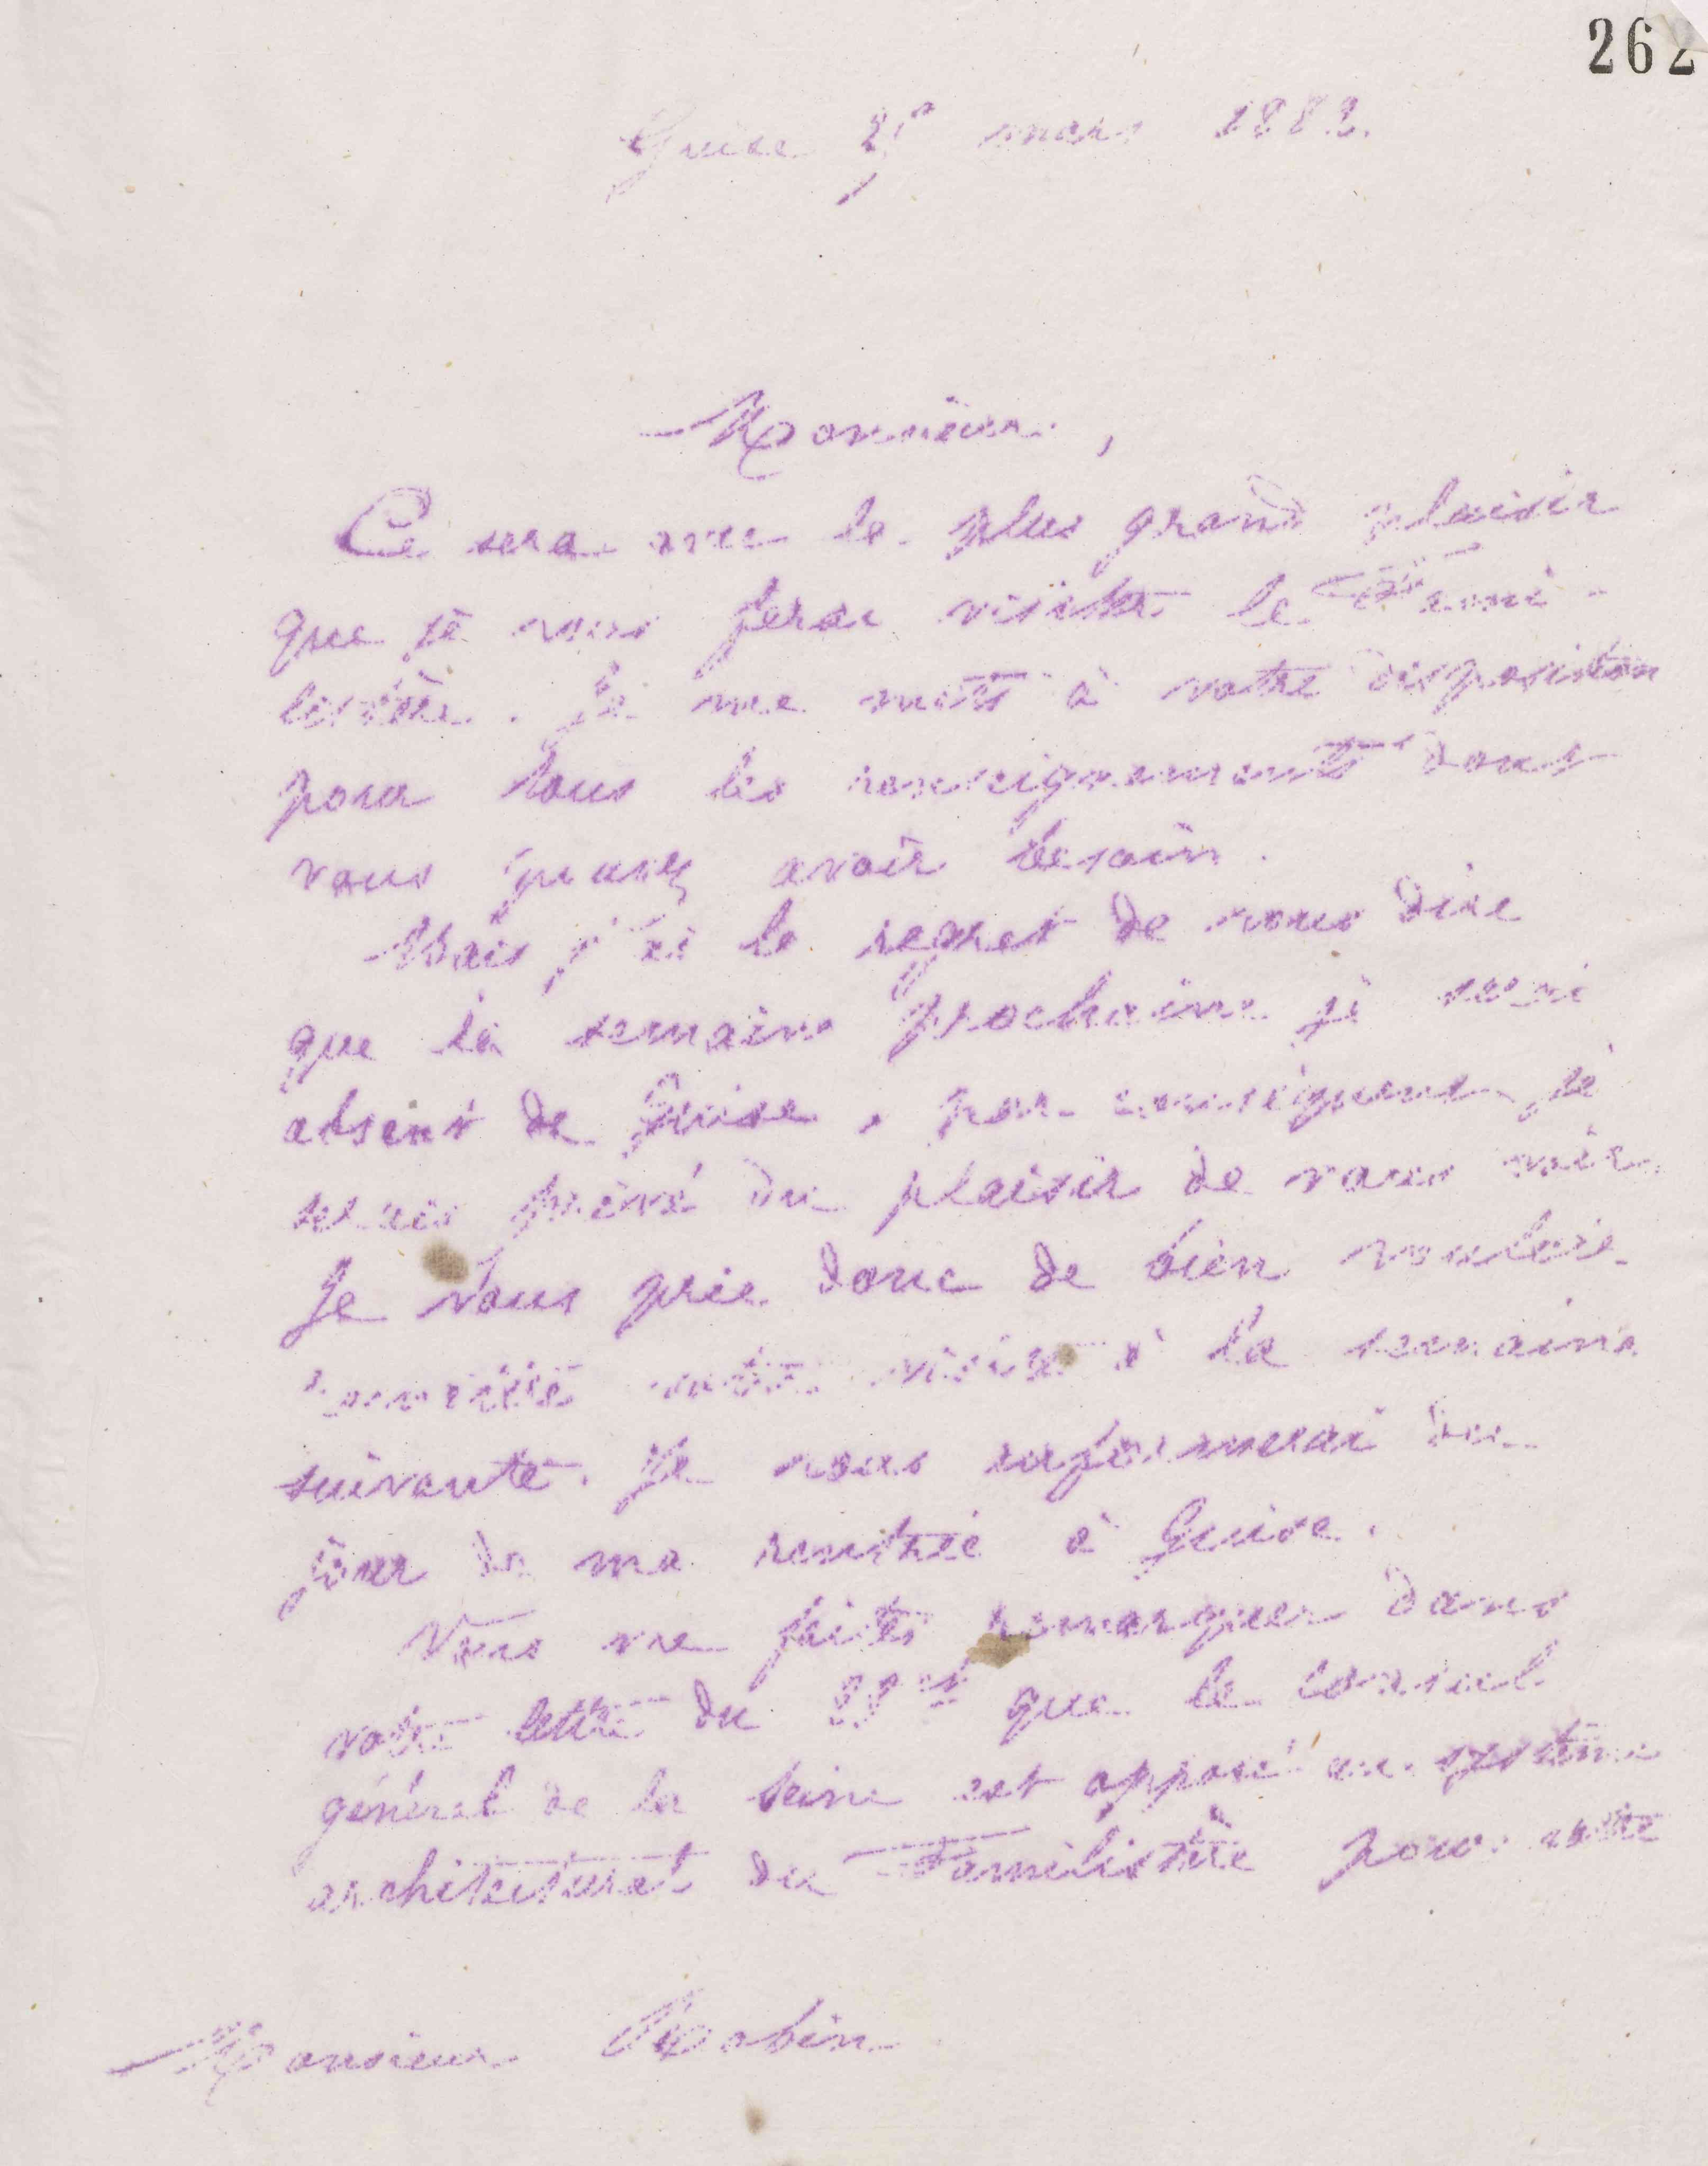 262
Guise mars 1882.
Monsieur,
Ce sera avec le plus grand plaisir
que je vous ferai visiter le Fami-
listère. Je me mets à votre disposition
pour tous les renseignements dont
vous pouvez avoir besoin.
Mais j'ai le regret de vous dire
que la semaine prochaine je serai
absent de Guise, par conséquent je
serais privé du plaisir de vous voir.
Je vous prie donc de bien vouloir
remettre votre visite à la semaine
suivante. Je vous informerai du
jour de ma rentrée à Guise.
Vous me faites remarquer dans
votre lettre du que le conseil
général de la Seine est opposé au système
architectural du Familistère pour votre
Monsieur Robin